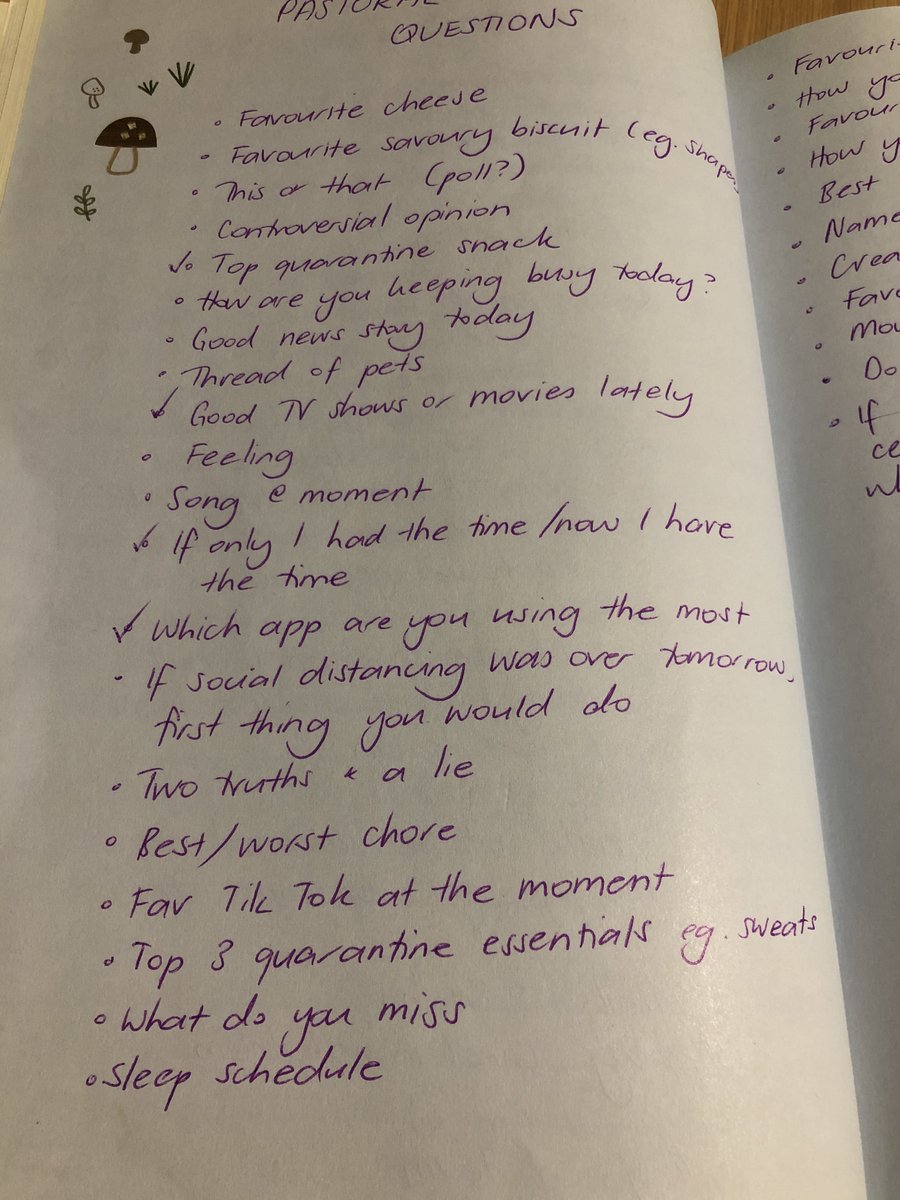 PASTORAL
QUESTIONS
• Favourite cheese
• Favourite savoury biscuit (eg. shapes
• This or that (poll?)
• Controversial opinion
✓• Top quarantine snack
• How are you keeping busy today?
• Good news stoy today
• Thread of pets
✓• Good TV shows or movies lately
• Feeling
• Song @ moment
✓• If only I had the time/now I have
the time
✓• Which app are you using the most
• If social distancing was over tomorrow,
first thing you would do
• Two truths & a lie
• Best/worst chore
• Fav Tik Tok at the moment
• Top 3 quarantine essentials eg. sweats
• What do you miss
• Sleep schedule
• Favouri
• How yo
• Favour
• How y
• Best
• Name
• Crea
• Favo
• Mov
• Do
• If
ce
wh